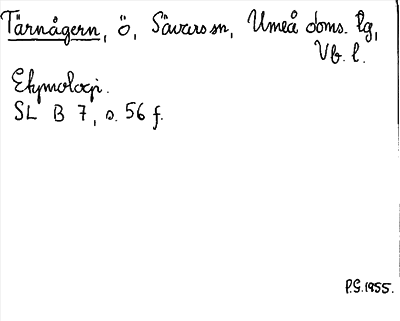 Tärnågern, ö, Sävars sn, Umeå doms. lg,
Vb. l.
Etymologi.
SL B 7, s. 56 f.
P.G. 1955.